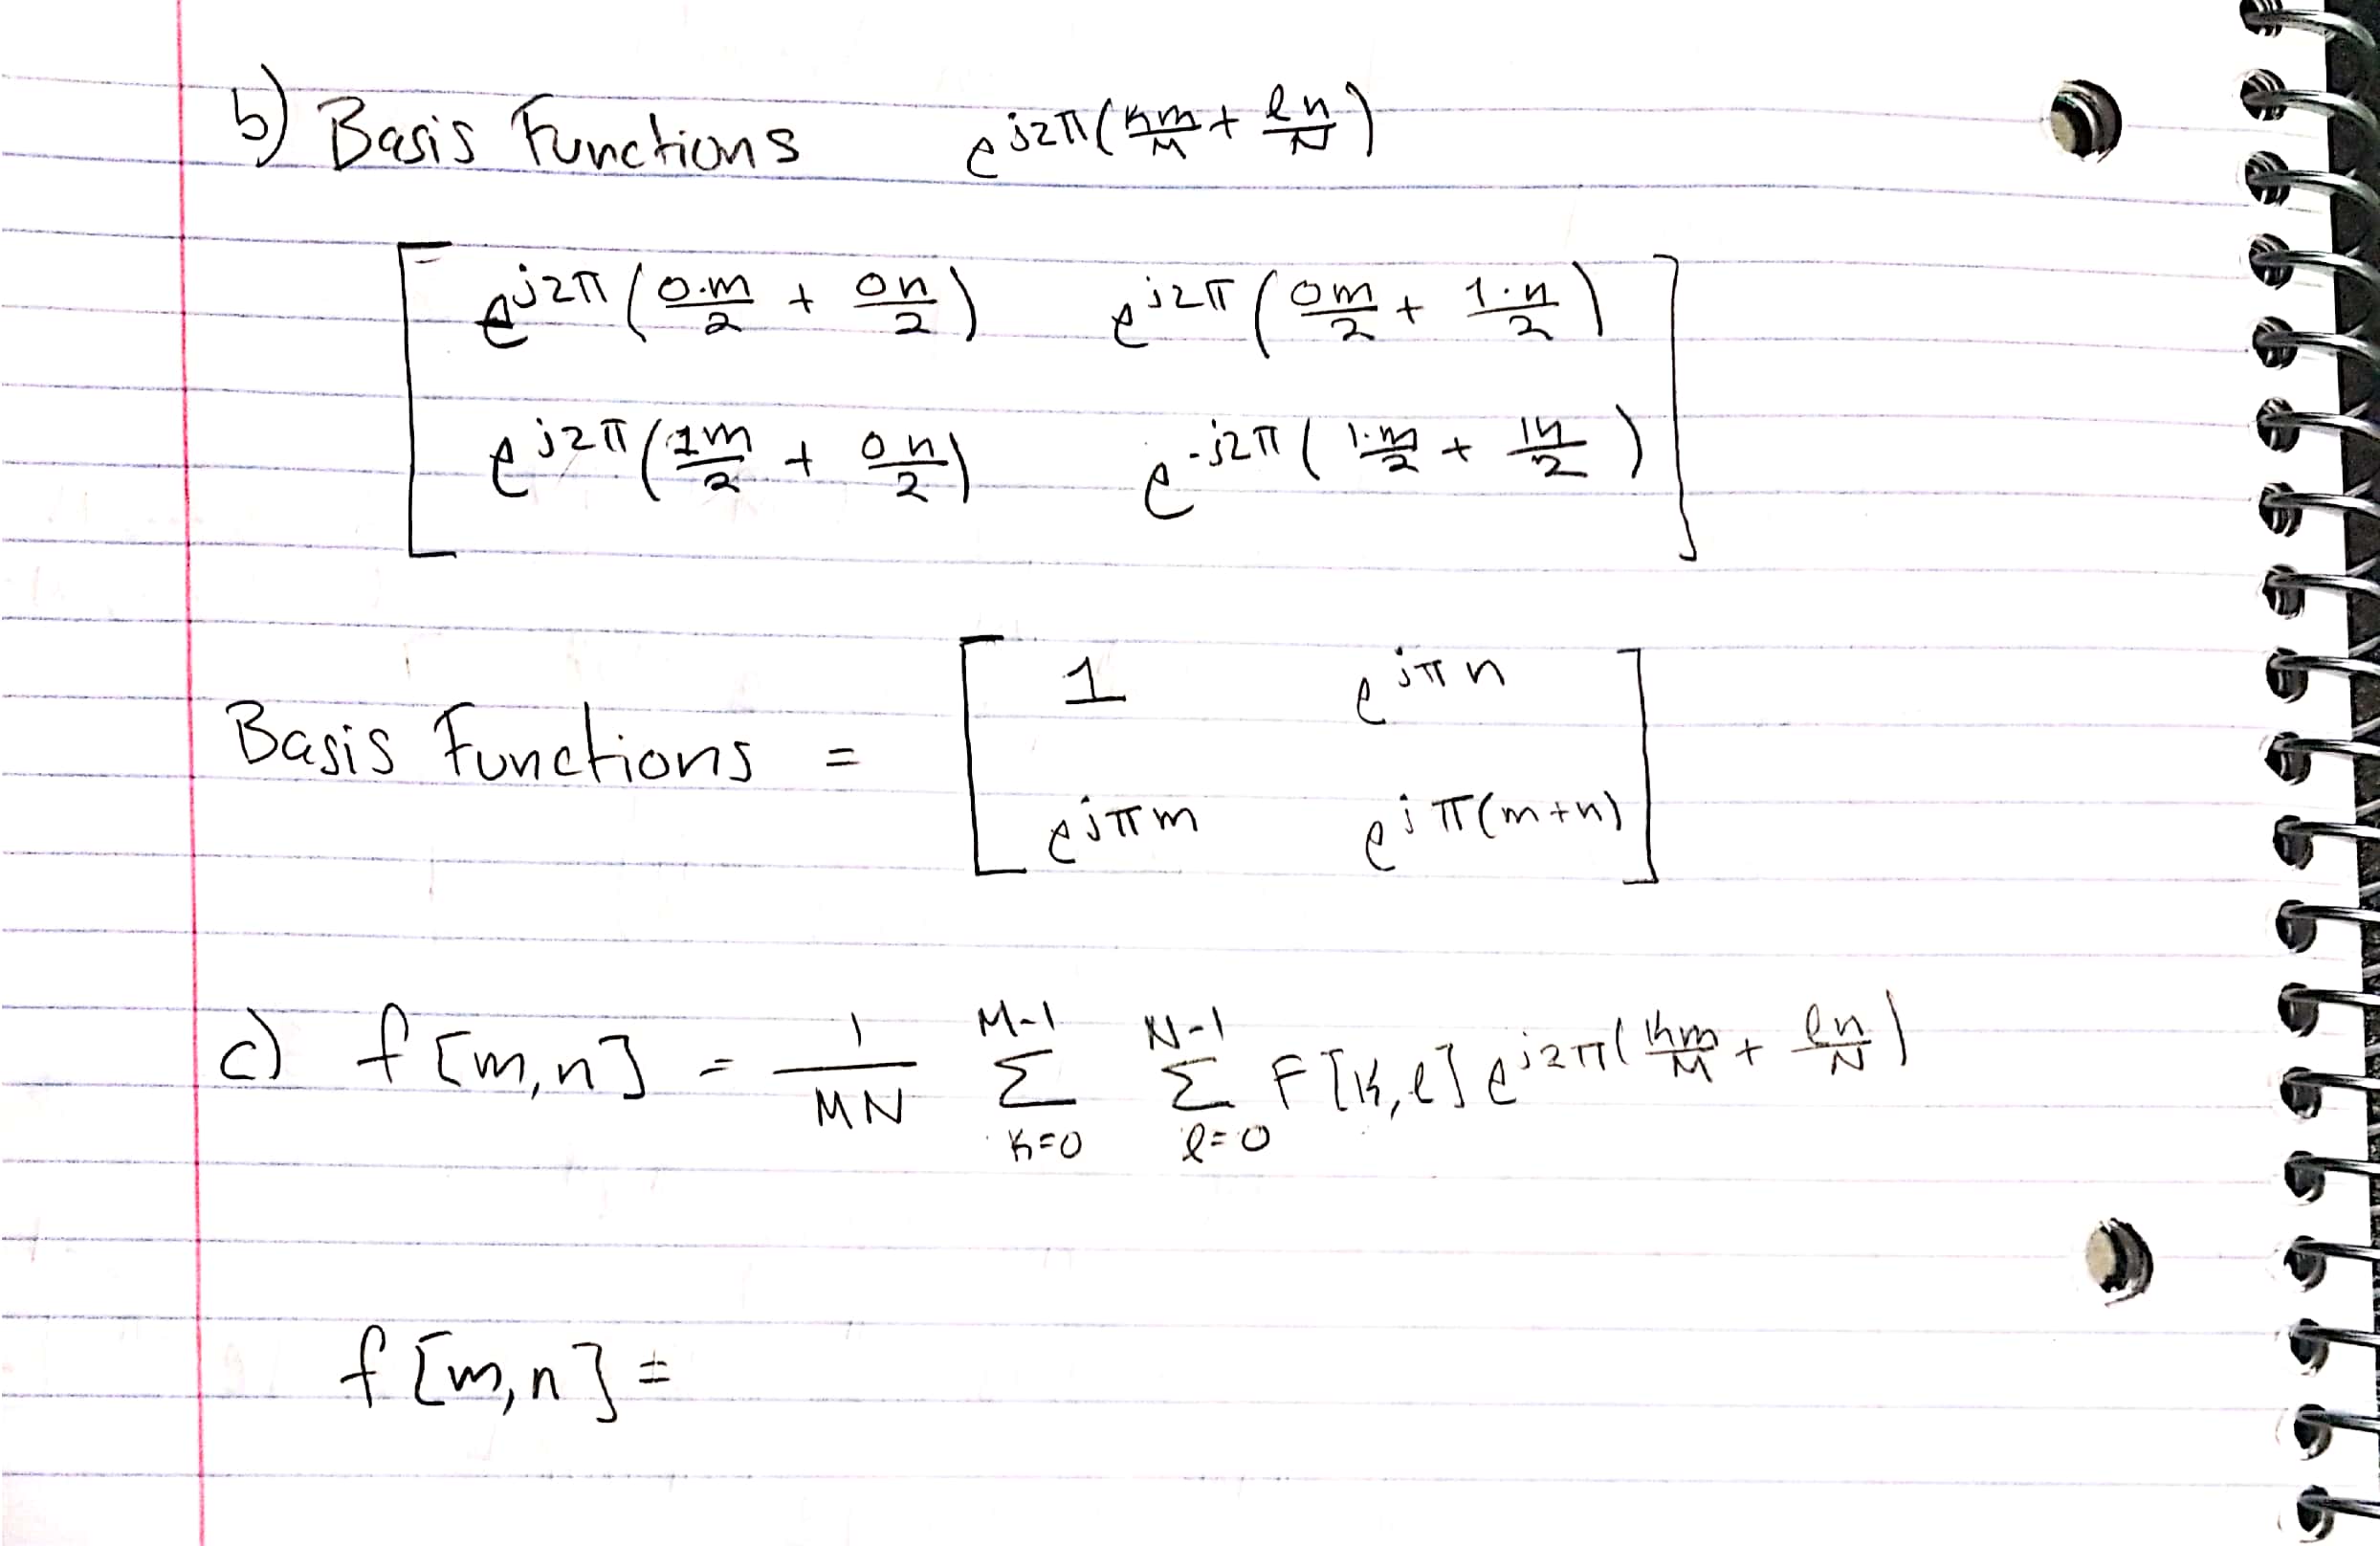 b) Basis Functions e^{j2π(km/M + ln/N)}
[ e^{j2π(0·m/2 + 0n/2)} e^{j2π(0m/2 + 1·n/2)}
e^{j2π(1m/2 + 0n/2)} e^{-j2π(1·m/2 + 1n/2)} ]
Basis Functions = [ 1 e^{jπn}
e^{jπm} e^{jπ(m+n)} ]
c) f[m,n] = 1/MN Σ_{k=0}^{M-1} Σ_{l=0}^{N-1} F[k,l] e^{j2π(km/M + ln/N)}
f[m,n] =